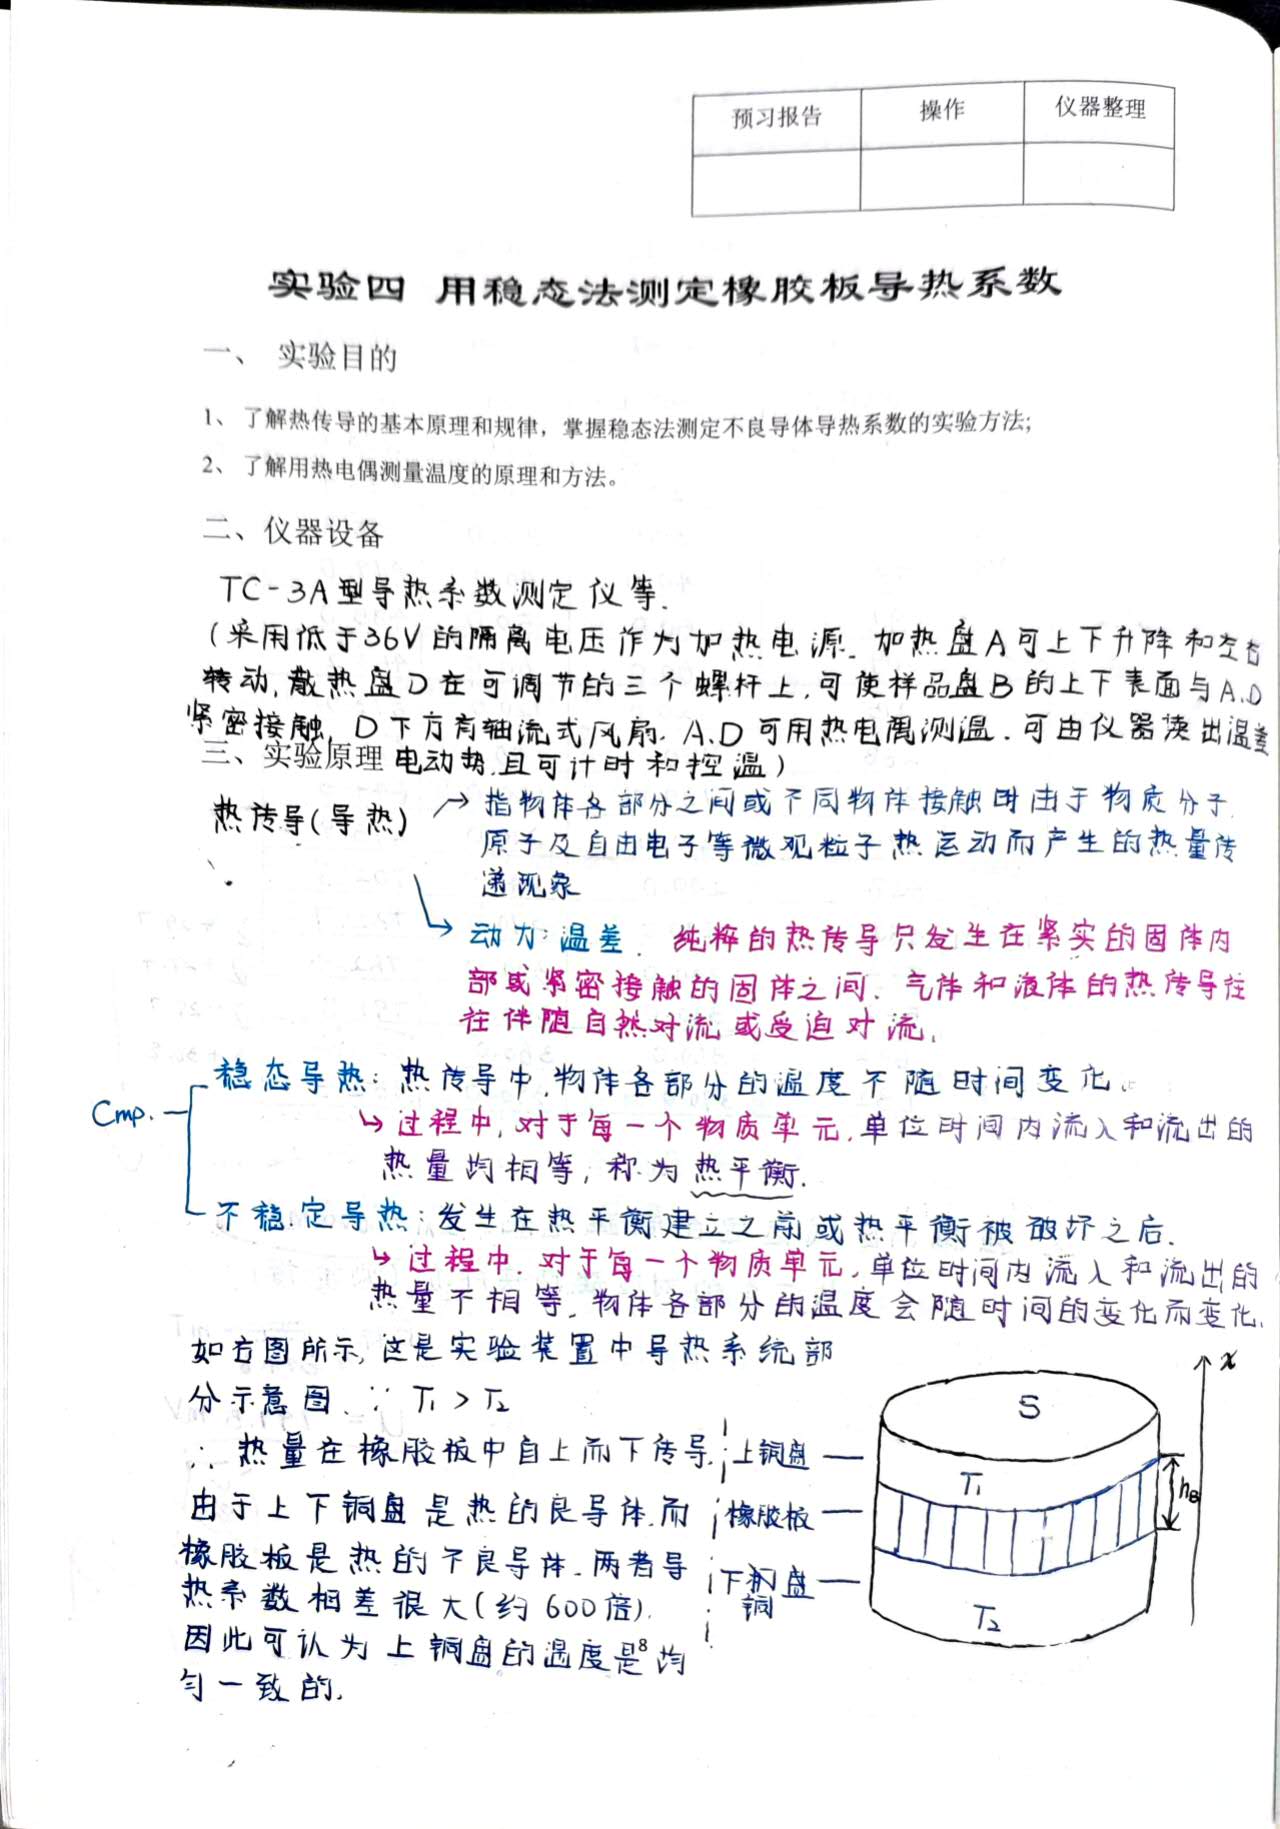 预习报告 操作 仪器整理
实验四 用稳态法测定橡胶板导热系数
一、 实验目的
1、 了解热传导的基本原理和规律，掌握稳态法测定不良导体导热系数的实验方法；
2、 了解用热电偶测量温度的原理和方法。
二、仪器设备
TC-3A型导热系数测定仪等.
(采用低于36V的隔离电压作为加热电源. 加热盘A可上下升降和左右
转动,散热盘D在可调节的三个螺杆上,可使样品盘B的上下表面与A.D
紧密接触, D下方有轴流式风扇. A、D可用热电偶测温.可由仪器读出温差
三、实验原理 电动势.且可计时和控温)
热传导(导热) → 指物体各部分之间或不同物体接触时由于物质分子.
原子及自由电子等微观粒子热运动而产生的热量传
递现象
→ 动力:温差. 纯粹的热传导只发生在紧实的固体内
部或紧密接触的固体之间. 气体和液体的热传导往
往伴随自然对流或受迫对流.
稳态导热: 热传导中.物体各部分的温度不随时间变化.
Cmp.
↳ 过程中,对于每一个物质单元,单位时间内流入和流出的
热量均相等, 称为热平衡.
不稳定导热:发生在热平衡建立之前或热平衡被破坏之后.
↳ 过程中.对于每一个物质单元,单位时间内流入和流出的
热量不相等,物体各部分的温度会随时间的变化而变化.
如右图所示,这是实验装置中导热系统部
分示意图. ∵ T₁ > T₂
∴ 热量在橡胶板中自上而下传导.
由于上下铜盘是热的良导体.而
橡胶板是热的不良导体.两者导
热系数相差很大(约600倍).
因此可认为上铜盘的温度是均
匀一致的.
x
S
上铜盘
T₁
h_B
橡胶板
下铜盘
T₂
8